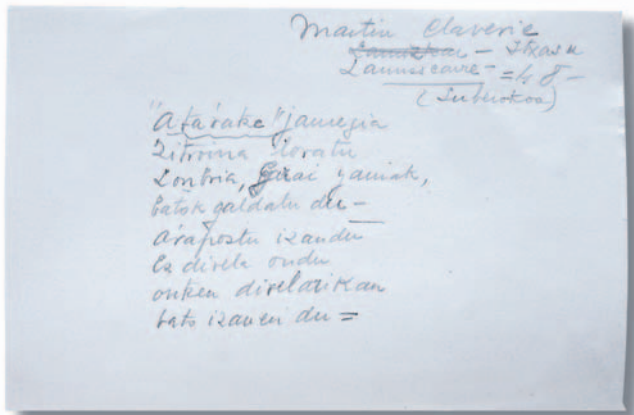 Martin Claverie
- Itxasu
= 48 -
(Suberokoa)
"Atarake" jauregia
Zitroina loratu
Lontria, Garai gainak,
batek galdatu du -
Arapostu izandu
Ez direla ondu
ontzen direlarikan
bats izanen du =